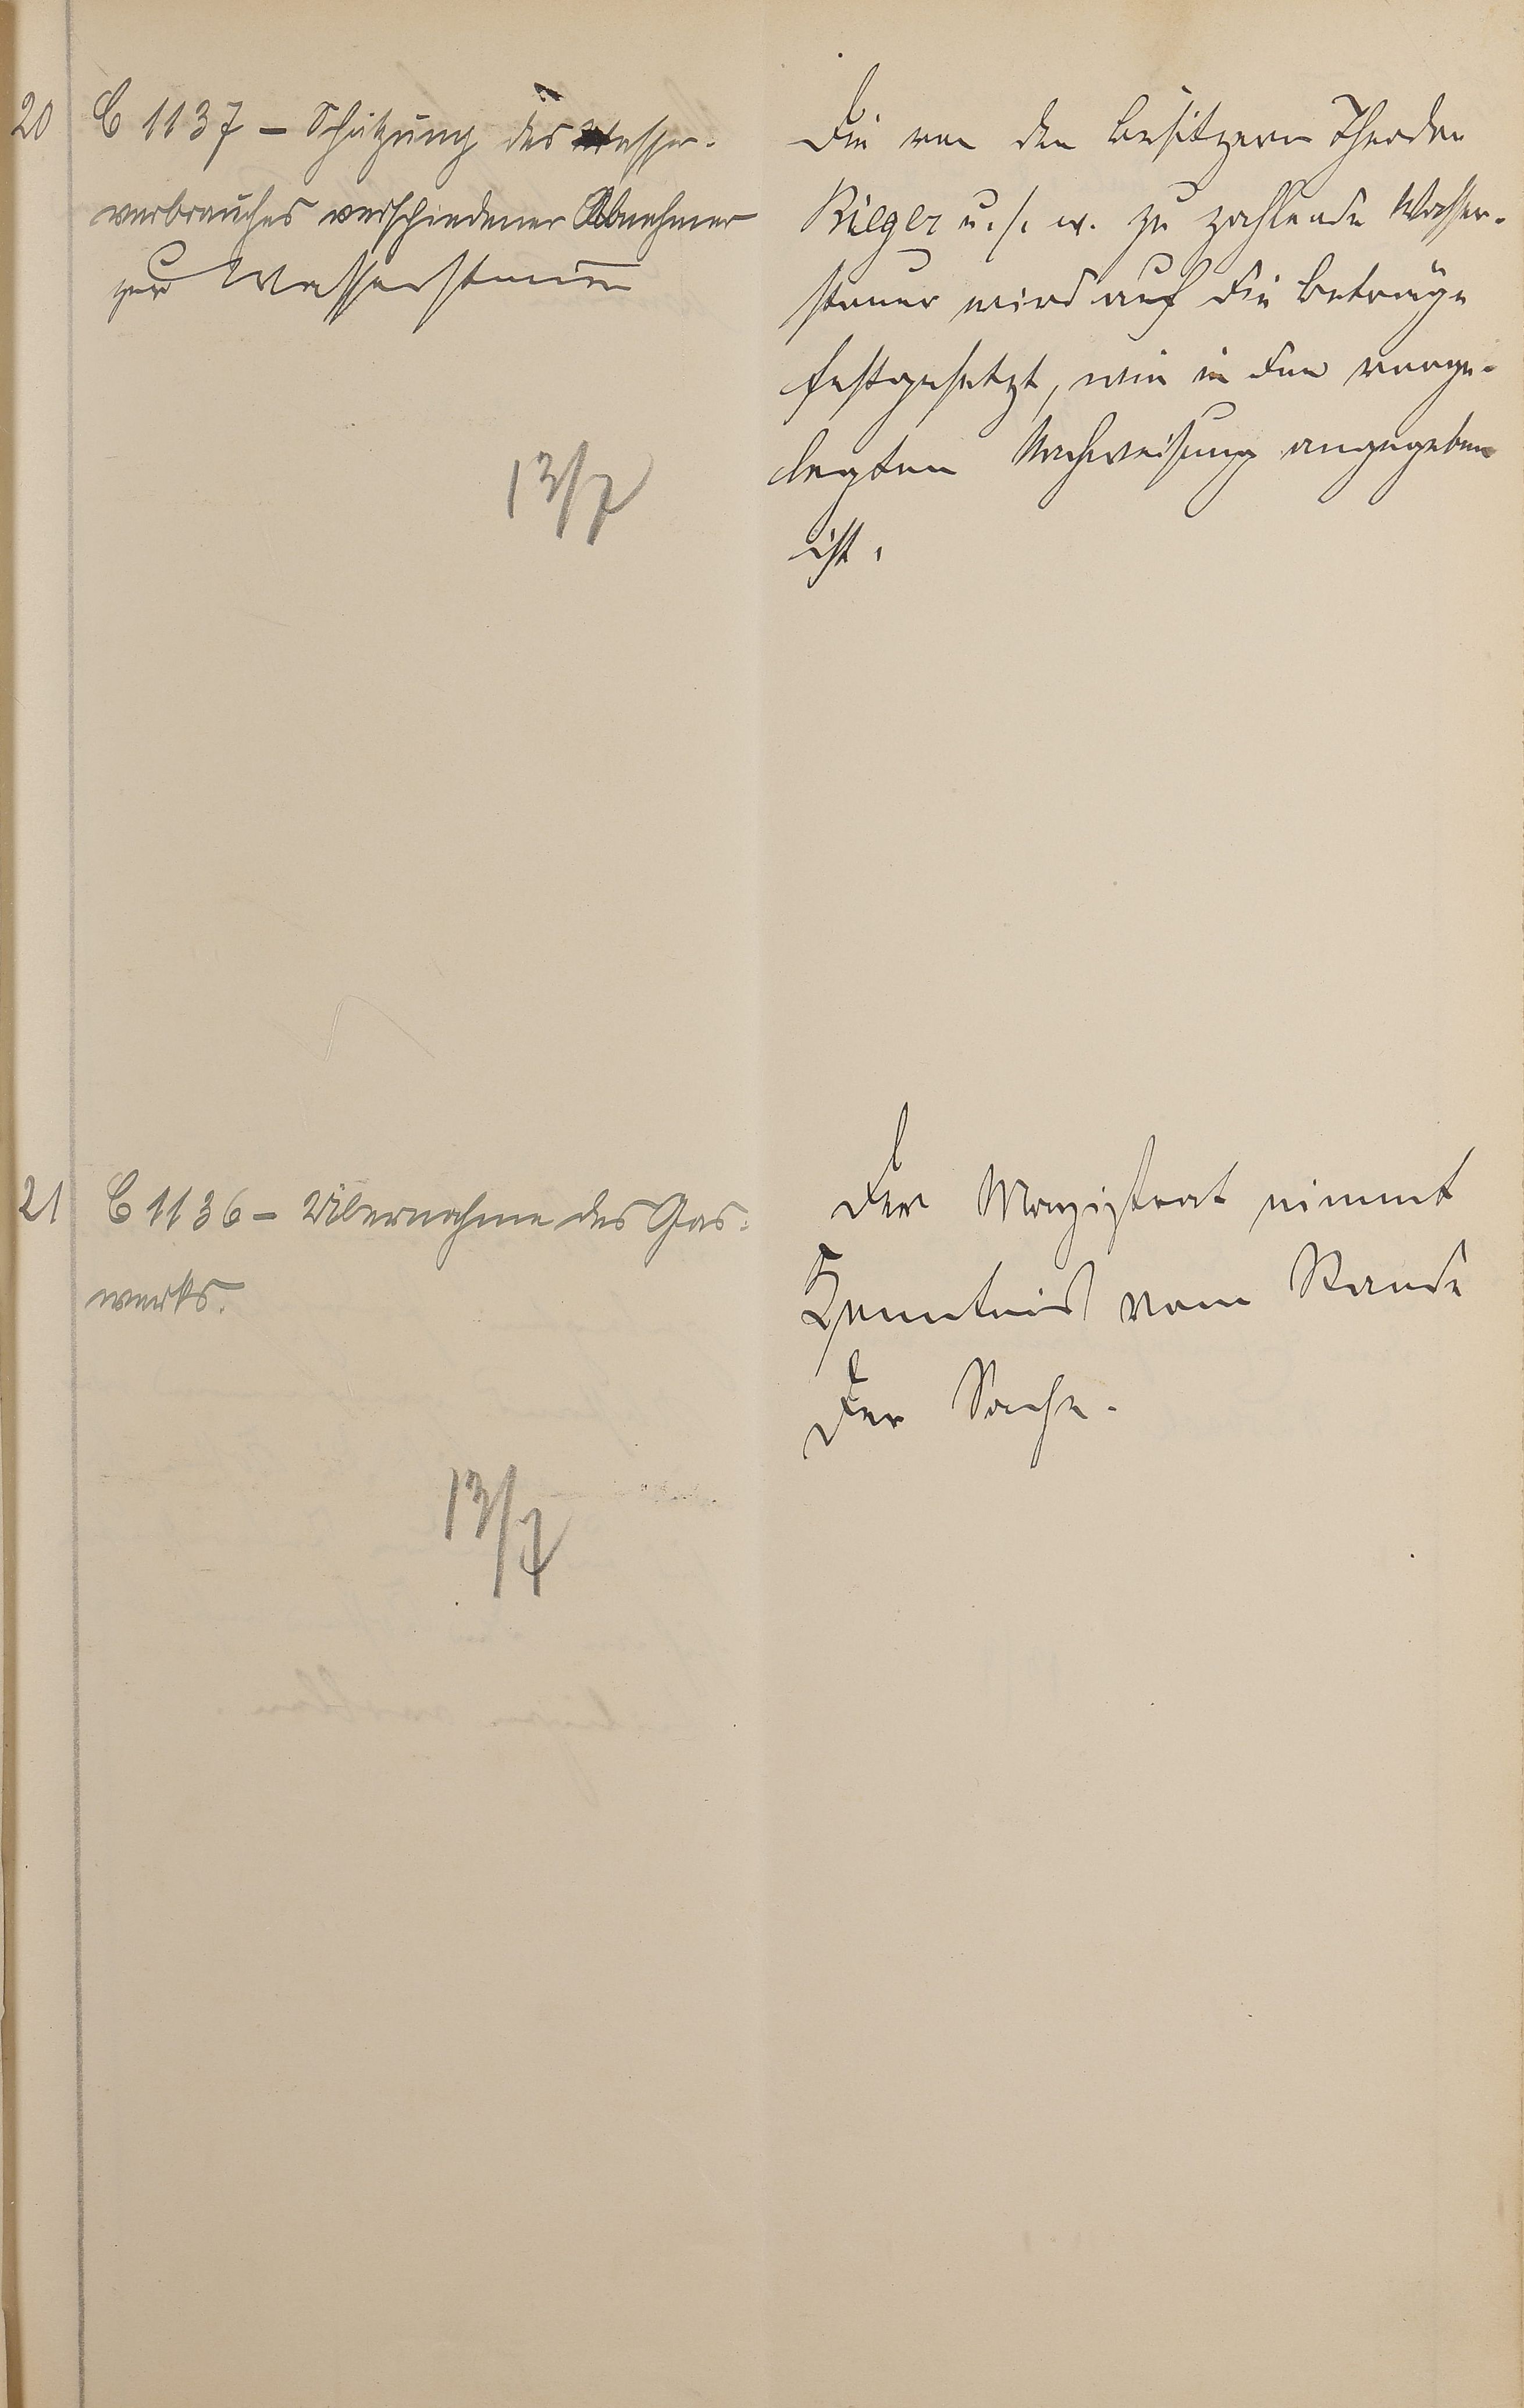 20
C 1137 – Schätzung des Wasser-
verbrauches verschiedener Abnehmer
zur Wassersteuer
13/7
Die von den Besitzern Theodor
Rieger u. s. w. zu zahlende Wasser-
steuer wird auf die Beträge
festgesetzt, wie in der vorge-
legten Nachweisung angegeben
ist.
21
C 1136 – Übernahme des Gas-
werks.
13/7
Der Magistrat nimmt
Kenntnis vom Stande
der Sache.